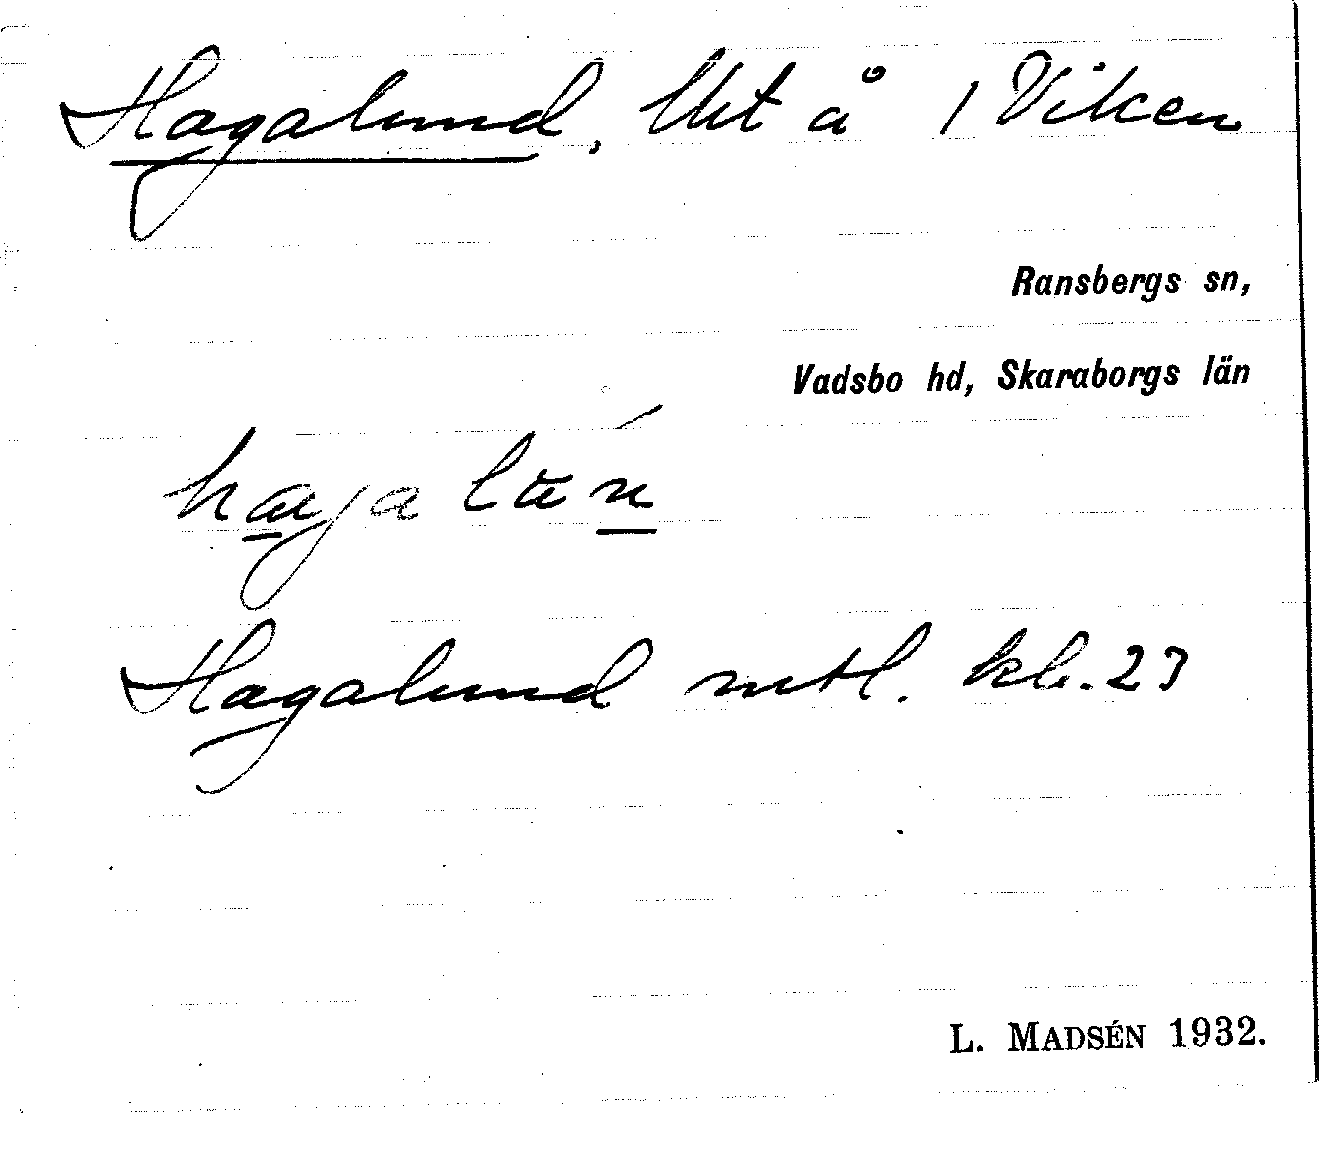 Hagalund, Utt å 1 Viken
Ransbergs sn,
Vadsbo hd, Skaraborgs län
Hagalund mtl. kb. 23
L. MADSÉN 1932.